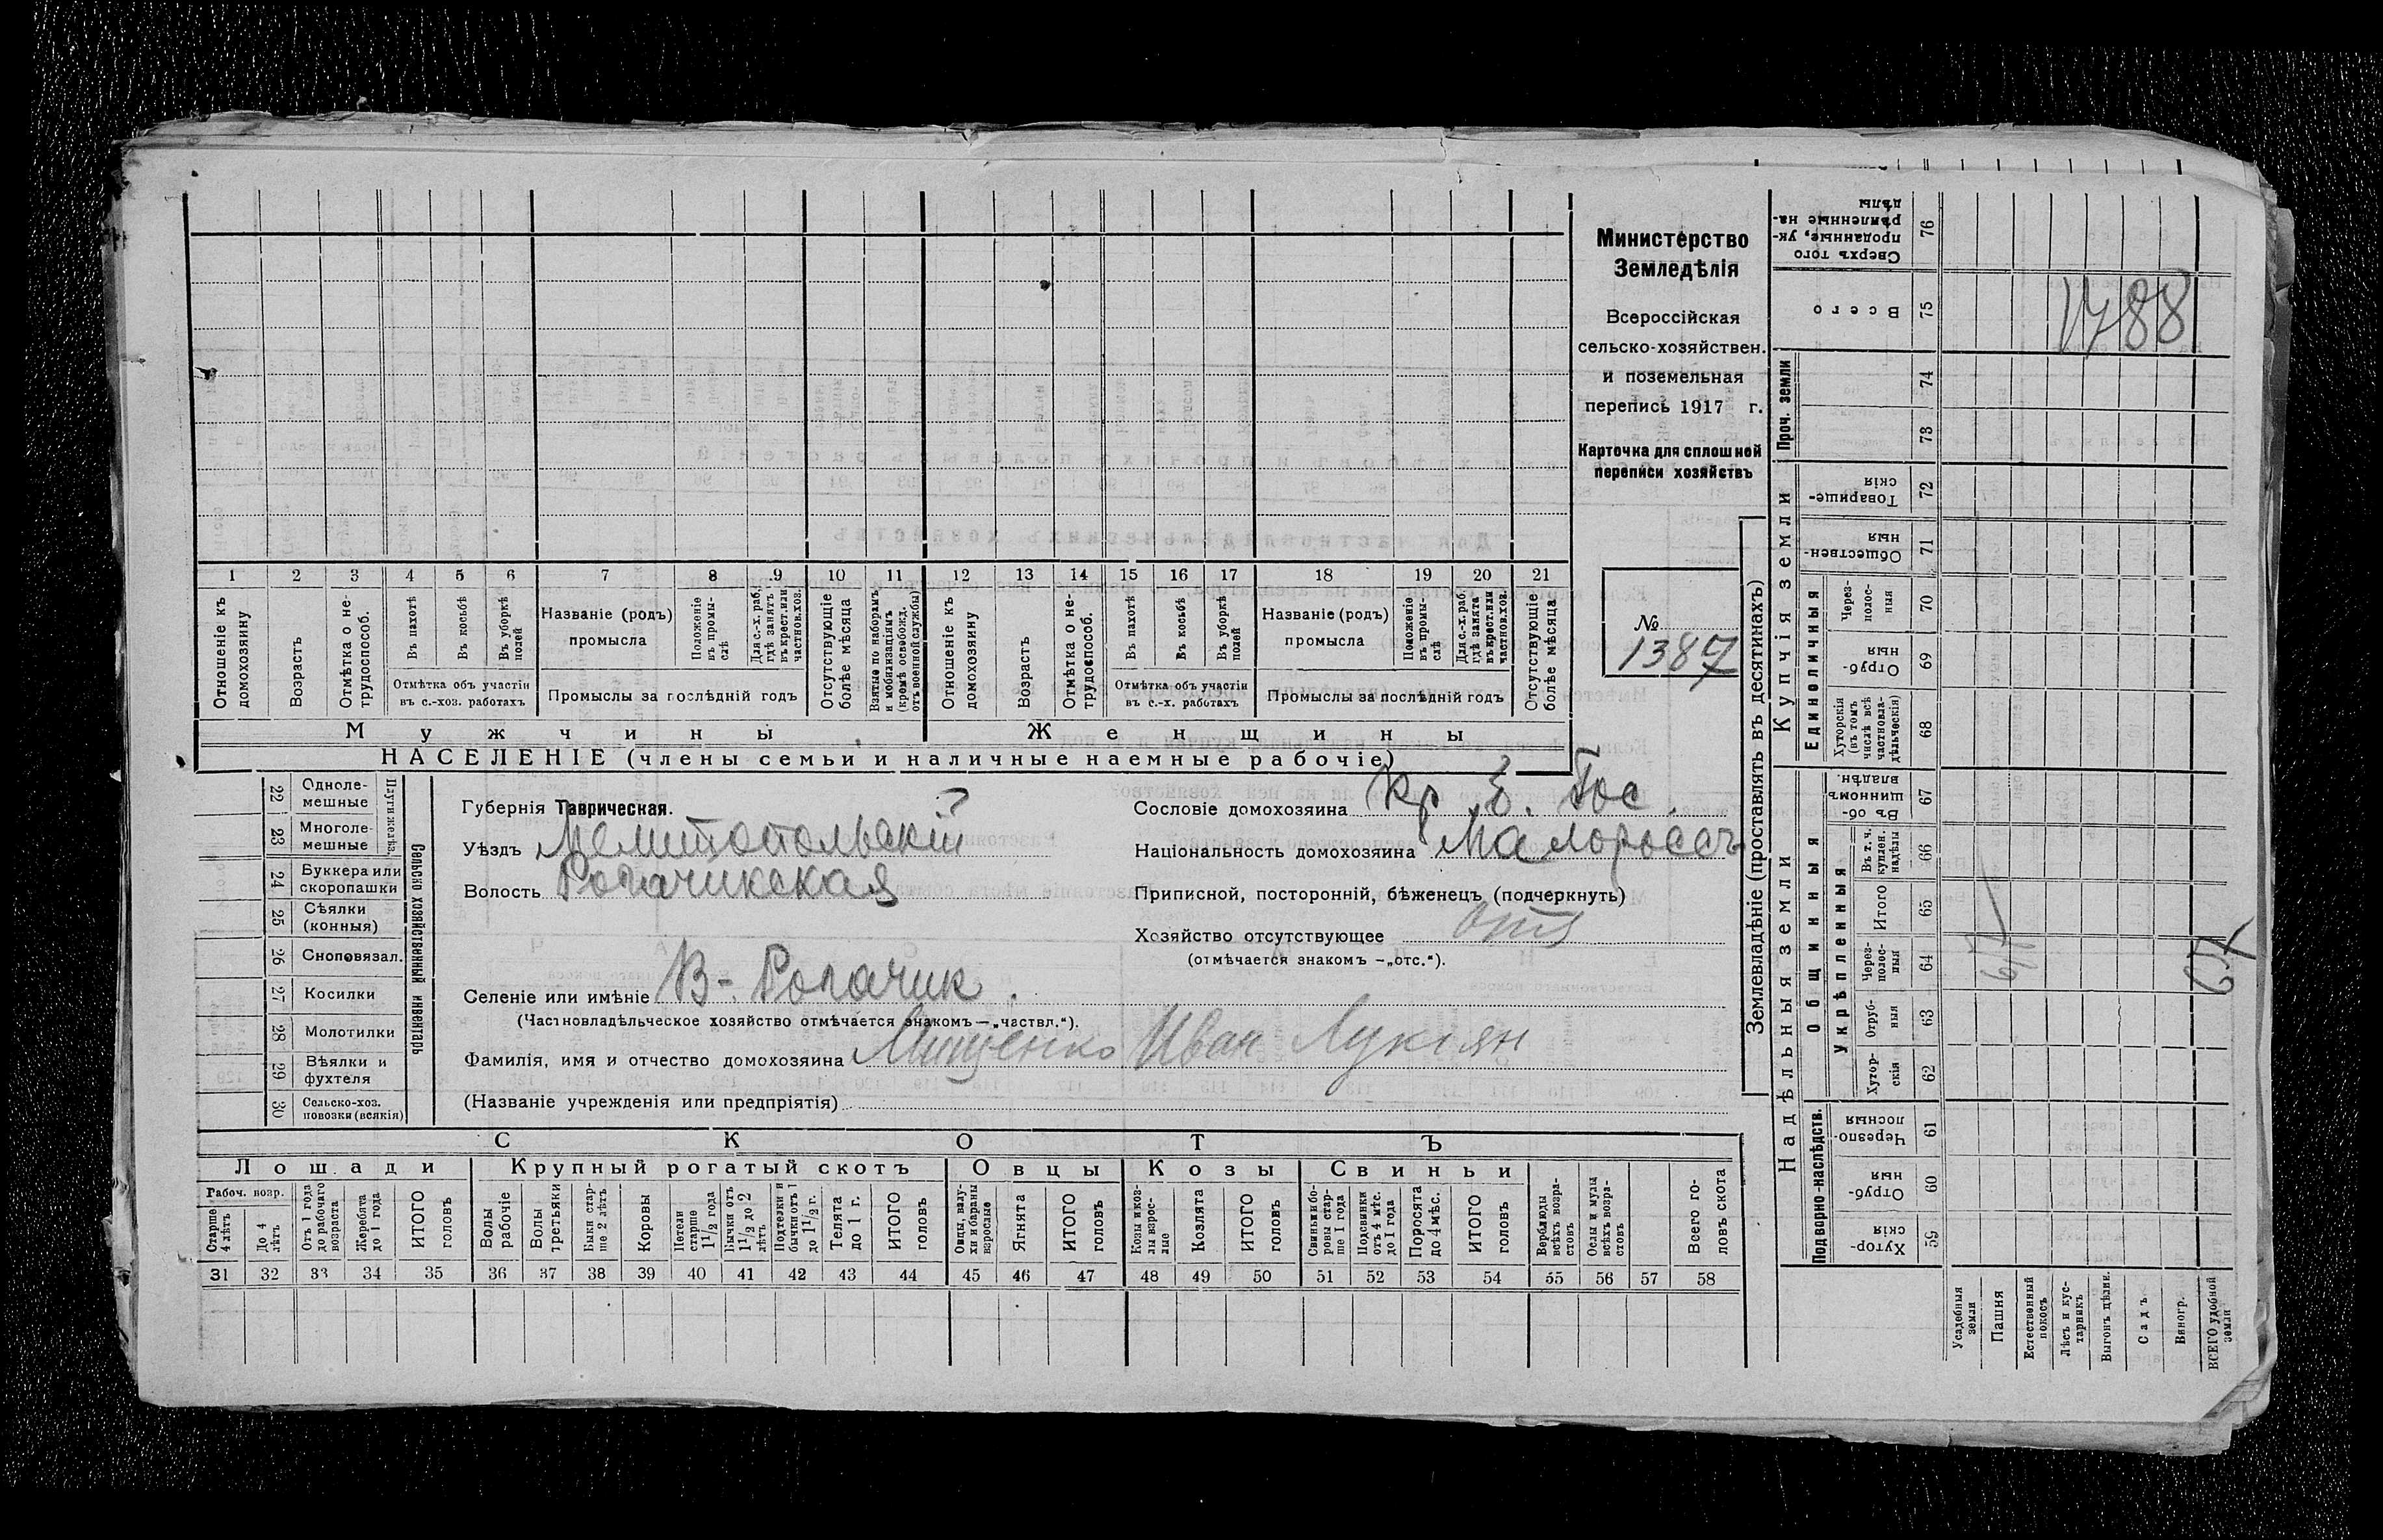 Министерство
Земледѣлія
Всероссійская
сельско-хозяйствен.
и поземельная
перепись 1917 г.
Карточка для сплошной
переписи хозяйствъ
№
1387
1 2 3 4 5 6 7 8 9 10 11 12 13 14 15 16 17 18 19 20 21
Отношеніе къ домохозяину
Возрастъ
Отмѣтка о не-трудоспособ.
Въ пахотѣ
Въ косьбѣ
Въ уборкѣ полей
Отмѣтка объ участіи
въ с.-хоз. работахъ
Названіе (родъ)
промысла
Положеніе въ промы-слѣ
Для с.-х. раб. гдѣ занятъ въ крест. или частнов. хоз.
Промыслы за послѣдній годъ
Отсутствующіе болѣе мѣсяца
Взятые по наборамъ и мобилизаціямъ (кромѣ освобожд. отъ военной службы)
Отношеніе къ домохозяину
Возрастъ
Отмѣтка о не-трудоспособ.
Въ пахотѣ
Въ косьбѣ
Въ уборкѣ полей
Отмѣтка объ участіи
въ с.-х. работахъ
Названіе (родъ)
промысла
Положеніе въ промы-слѣ
Для с.-х. раб. гдѣ занята въ крест. или частнов. хоз.
Промыслы за послѣдній годъ
Отсутствующіе болѣе мѣсяца
Мужчины
Женщины
НАСЕЛЕНІЕ (члены семьи и наличные наемные рабочіе)
Сельско хозяйственный инвентарь
Плуги желѣз.
22 Одноле-мешные
23 Многоле-мешные
24 Буккера или скоропашки
25 Сѣялки (конныя)
26 Сноповязал.
27 Косилки
28 Молотилки
29 Вѣялки и фухтеля
30 Сельско-хоз. повозки (всякія)
Губернія Таврическая.
Уѣздъ Мелитопольскій
Волость Рогачикская
Селеніе или имѣніе В-Рогачик.
(Частновладѣльческое хозяйство отмѣчается знакомъ — „частвл.“).
Фамилія, имя и отчество домохозяина Мищенко Иван Лукіян
(Названіе учрежденія или предпріятія)
Сословіе домохозяина Кр. Б. Гос.
Національность домохозяина Малороссъ
Приписной, посторонній, бѣженецъ (подчеркнуть)
Хозяйство отсутствующее отс
(отмѣчается знакомъ — „отс.“).
СКОТЪ
Лошади
Крупный рогатый скотъ
Овцы
Козы
Свиньи
Рабоч. возр.
Старше 4 лѣтъ
До 4 лѣтъ
Отъ 1 года до рабочаго возраста
Жеребята до 1 года
ИТОГО головъ
Волы рабочіе
Волы третьяки
Быки стар-ше 2 лѣтъ
Коровы
Нетели старше 1 1/2 года
Бычки отъ 1 1/2 до 2 лѣтъ
Подтелки и бычки отъ 1 до 1 1/2 г.
Телята до 1 г.
ИТОГО головъ
Овцы, валу-хи и бараны взрослые
Ягнята
ИТОГО головъ
Козы и коз-лы взрос-лые
Козлята
ИТОГО головъ
Свиньи и бо-ровы стар-ше 1 года
Подсвинки отъ 4 мѣс. до 1 года
Поросята до 4 мѣс.
ИТОГО головъ
Верблюды всѣхъ возра-стовъ
Ослы и мулы всѣхъ возра-стовъ
Всего го-ловъ скота
31 32 33 34 35 36 37 38 39 40 41 42 43 44 45 46 47 48 49 50 51 52 53 54 55 56 57 58
Землевладѣніе (проставлять въ десятинахъ)
Купчія земли
Надѣльныя земли
Сверхъ того проданные, ук-рѣпленные на-дѣлы 76
Всего 75
1788
Проч. земли
74
73
Товарище-скія 72
Обществен-ныя 71
Единоличныя
Через-полос-ныя 70
Отруб-ныя 69
Хуторскія (въ томъ числѣ всѣ частновла-дѣльческія) 68
Общинныя
Въ об-щинномъ владѣн. 67
Укрѣпленныя
Въ т. ч. куплен. надѣлы 66
Итого 65
Через-полос-ныя 64
67
67
Отруб-ныя 63
Хутор-скія 62
Подворно-наслѣдств.
Черезпо-лосныя 61
Отруб-ныя 60
Хутор-скія 59
Усадебныя земли
Пашня
Естественный покосъ
Лѣсъ и кус-тарникъ
Выгонъ, цѣлин.
Садъ
Виногр.
ВСЕГО удобной земли